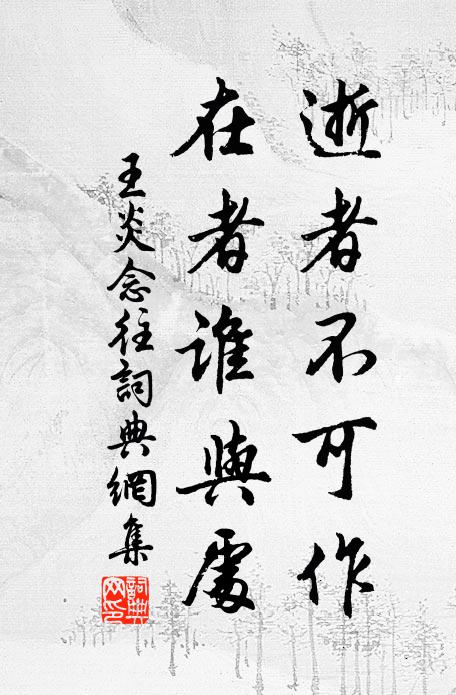 逝者不可作
在者誰與處
王炎念往詞典網集
詞典
网印